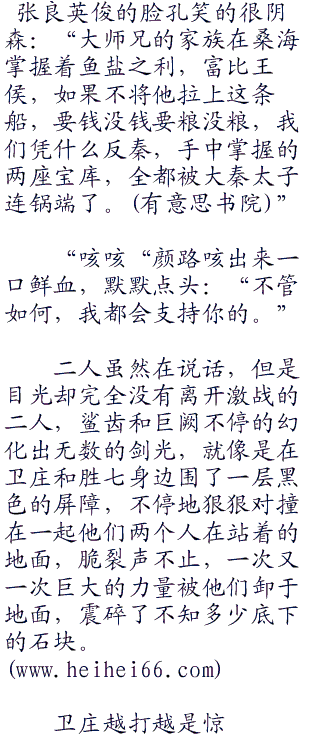 张良英俊的脸孔笑的很阴
森：“大师兄的家族在桑海
掌握着鱼盐之利，富比王
侯，如果不将他拉上这条
船，要钱没钱要粮没粮，我
们凭什么反秦，手中掌握的
两座宝库，全都被大秦太子
连锅端了。(有意思书院)”
“咳咳“颜路咳出来一
口鲜血，默默点头：“不管
如何，我都会支持你的。”
二人虽然在说话，但是
目光却完全没有离开激战的
二人，鲨齿和巨阙不停的幻
化出无数的剑光，就像是在
卫庄和胜七身边围了一层黑
色的屏障，不停地狠狠对撞
在一起他们两个人在站着的
地面，脆裂声不止，一次又
一次巨大的力量被他们卸于
地面，震碎了不知多少底下
的石块。
(www.heihei66.com)
卫庄越打越是惊